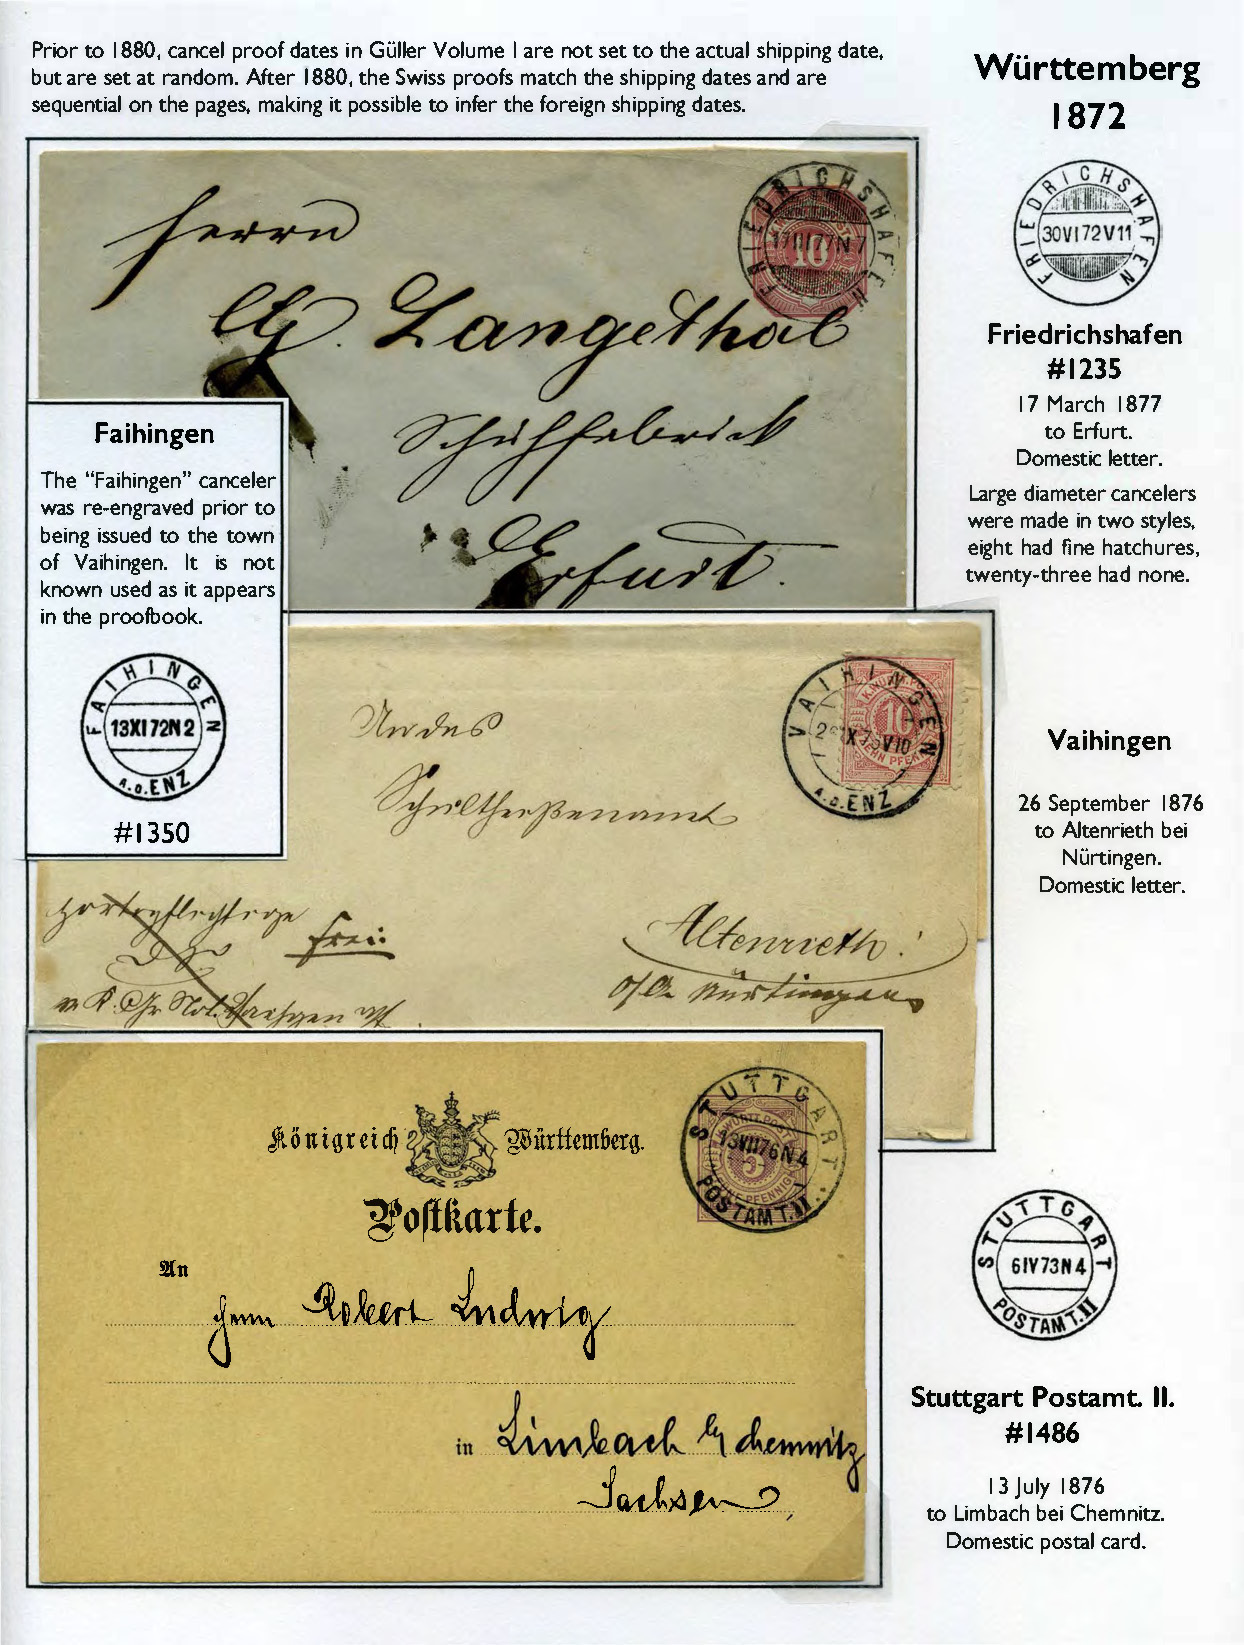 Prior to 1880, cancel proof dates in Güller Volume I are not set to the actual shipping date,
but are set at random. After 1880, the Swiss proofs match the shipping dates and are
sequential on the pages, making it possible to infer the foreign shipping dates.
Württemberg
1872
FRIEDRICHSHAFEN
30VI72V11
Friedrichshafen
#1235
17 March 1877
to Erfurt.
Domestic letter.
Large diameter cancelers
were made in two styles,
eight had fine hatchures,
twenty-three had none.
FRIEDRICHSHAFEN
10
Herrn
Langethal
Schuhfabrick
Erfurt.
Faihingen
The "Faihingen" canceler
was re-engraved prior to
being issued to the town
of Vaihingen. It is not
known used as it appears
in the proofbook.
FAIHINGEN
13XI72N2
A.D.ENZ
#1350
VAIHINGEN
A.D.ENZ
10
An das
Schultheißenamt
frei
Altenrieth
Nürtingen
Vaihingen
26 September 1876
to Altenrieth bei
Nürtingen.
Domestic letter.
STUTTGART
13VII76N4
POSTAMT.II
5
Königreich Württemberg.
Postkarte.
An
Herrn Robert Ludwig
in Limbach b/ Chemnitz
Sachsen
STUTTGART
6IV73N4
POSTAMT.II
Stuttgart Postamt. II.
#1486
13 July 1876
to Limbach bei Chemnitz.
Domestic postal card.